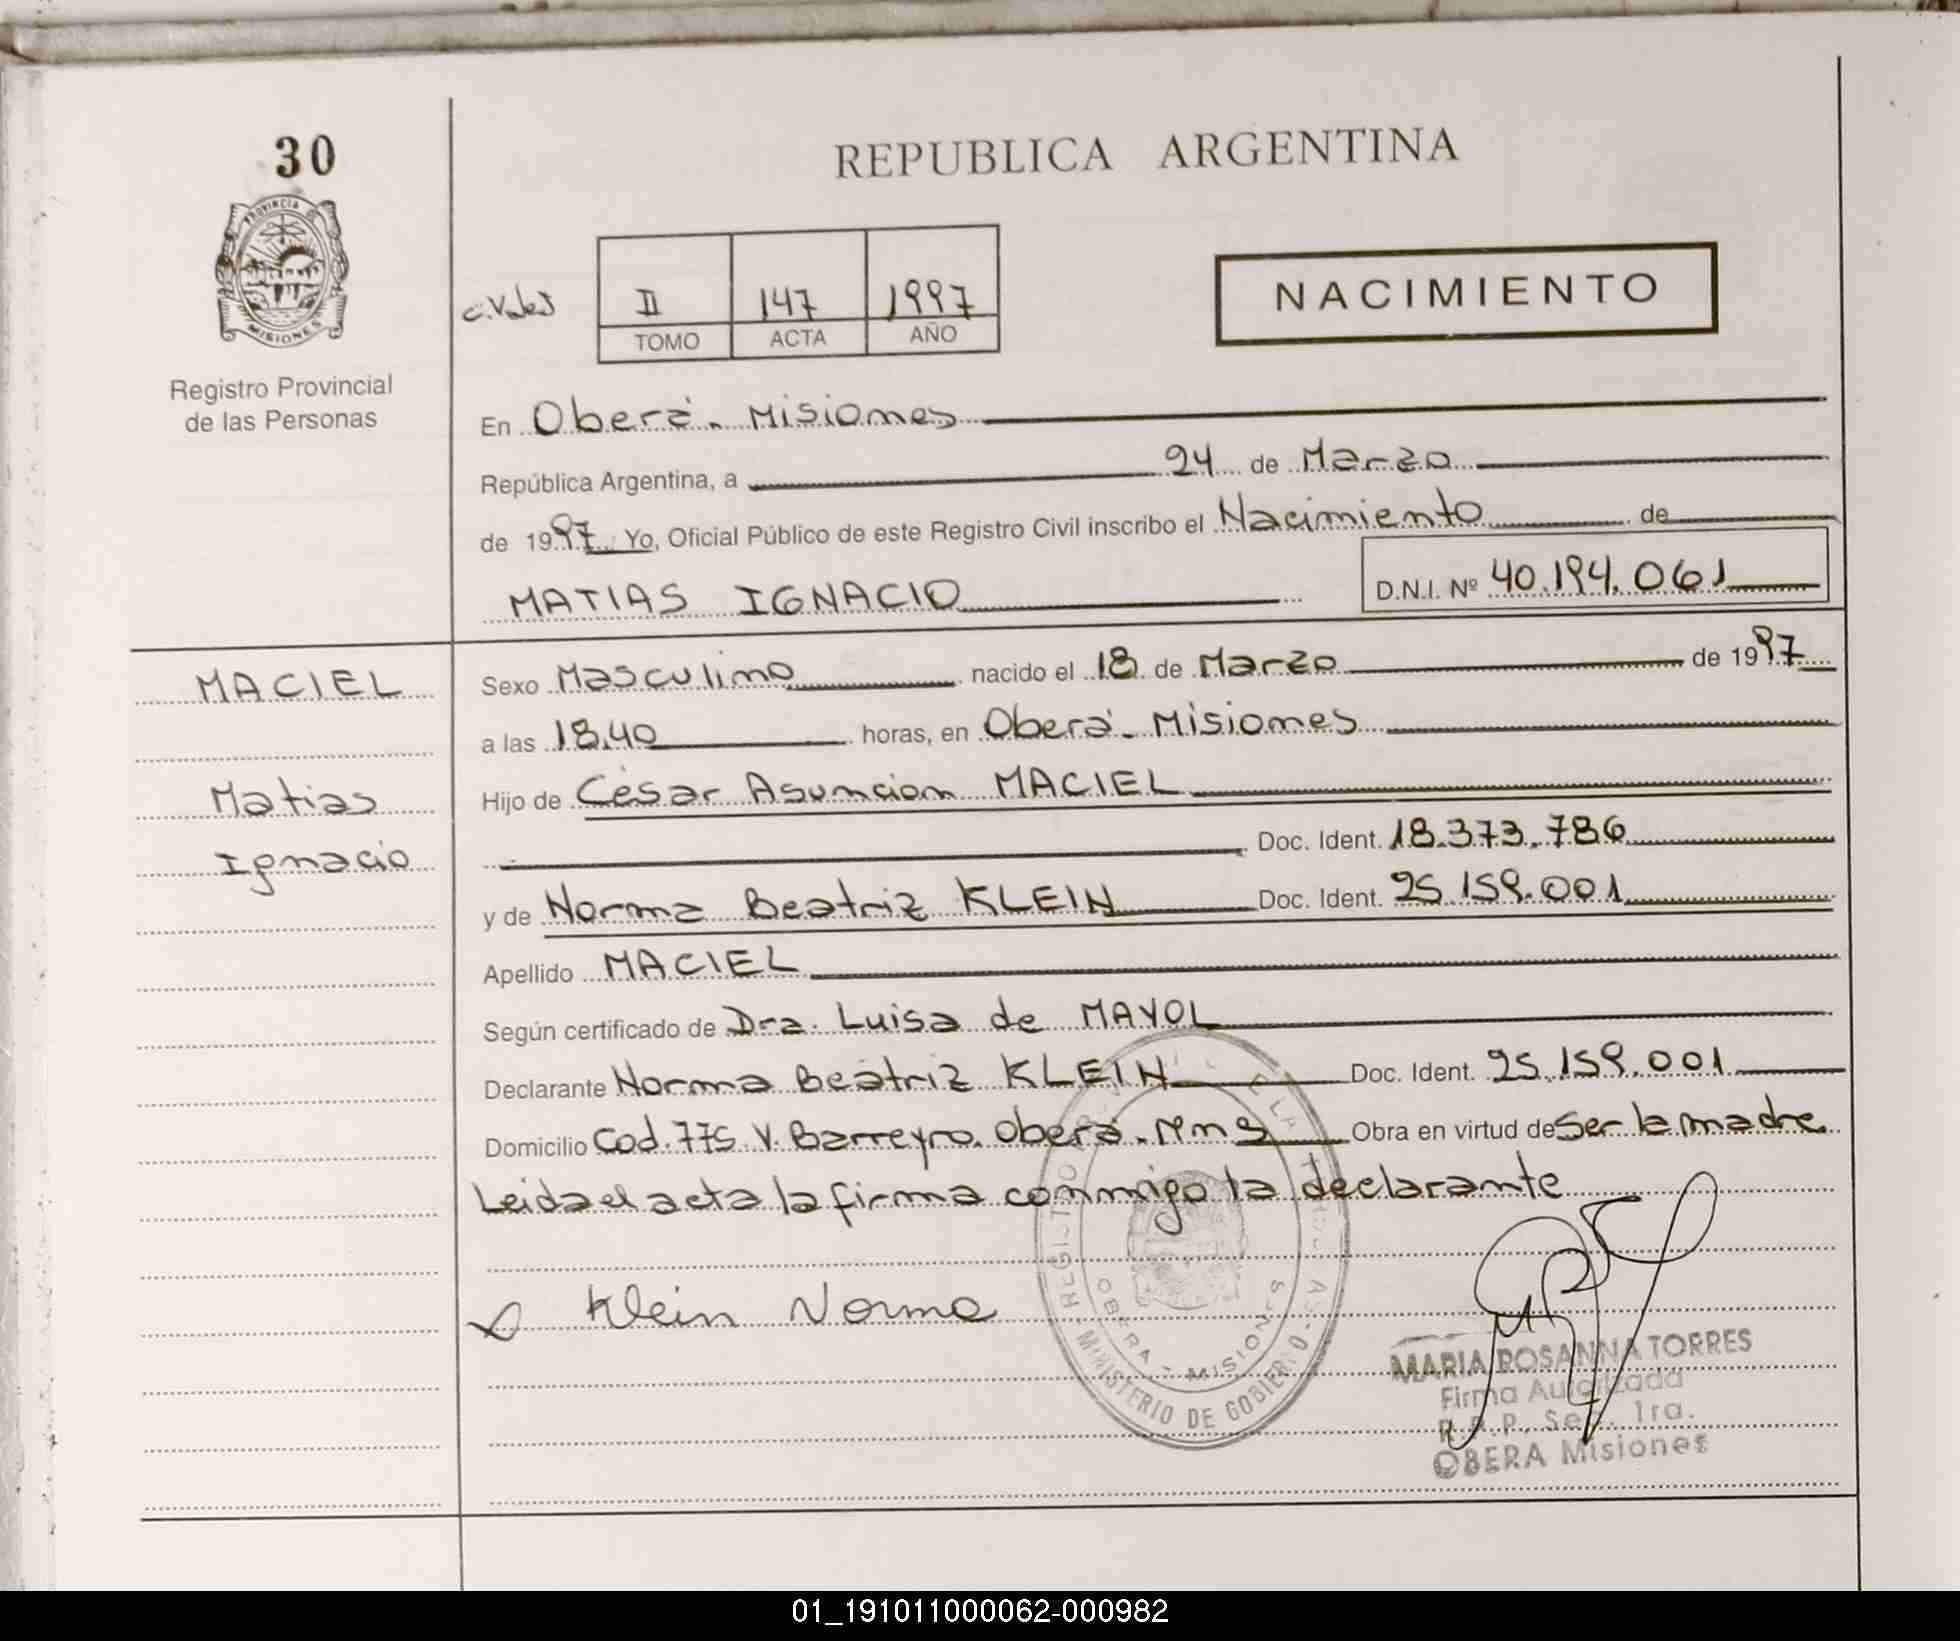 30
PROVINCIA DE
MISIONES
Registro Provincial
de las Personas
REPUBLICA ARGENTINA
II 147 1997
TOMO ACTA AÑO
NACIMIENTO
En Oberá. Misiones
República Argentina, a 24 de Marzo
de 1997 Yo, Oficial Público de este Registro Civil inscribo el Nacimiento de
MATIAS IGNACIO D.N.I. Nº 40.194.061
MACIEL
Matias
Ignacio
Sexo Masculino nacido el 18 de Marzo de 1997
a las 18,40 horas, en Oberá. Misiones
Hijo de César Asuncion MACIEL
Doc. Ident. 18.373.786
y de Norma Beatriz KLEIN Doc. Ident. 25.159.001
Apellido MACIEL
Según certificado de Dra. Luisa de MAYOL
Declarante Norma Beatriz KLEIN Doc. Ident. 25.159.001
Domicilio Cod. 775 V. Barreyro. Oberá. Mns Obra en virtud de Ser la madre
Leida el acta la firma conmigo la declarante
Klein Norma
OBERA - MISIONES
MINISTERIO DE GOBIERNO
MARIA ROSANNA TORRES
Firma Autorizada
R.P.P. Sec. 1ra.
OBERA Misiones
01_191011000062-000982